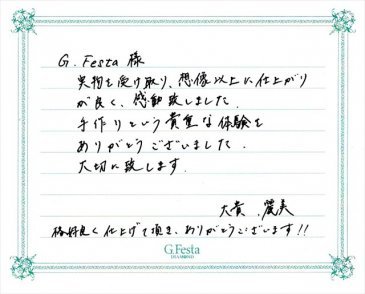 G.Festa 様
実物を受け取り、想像以上に仕上がり
が良く、感動致しました.
手作りという貴重な体験を
ありがとうございました.
大切に致します.
大貴 麗美
格好良く仕上げて頂き、ありがとうございます!!
G.Festa
DIAMOND